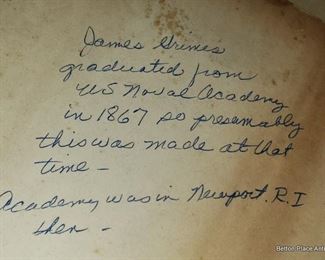 James Grimes
graduated from
US Naval Academy
in 1867 so presumably
this was made at that
time -
Academy was in Newport, R.I
then -
Betton Place Anti